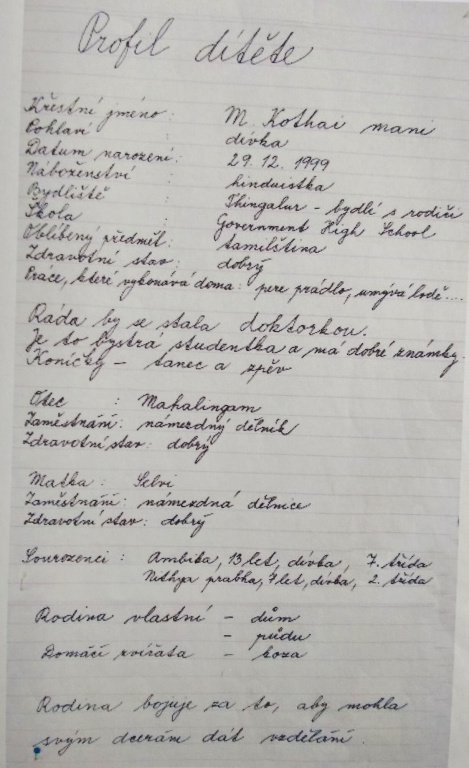 Profil dítěte
Křestní jméno : M. Kothai mani
Pohlaví : dívka
Datum narození : 29.12.1999
Náboženství : hinduistka
Bydliště : Thingalur - bydlí s rodiči
Škola : Government High School
Oblíbený předmět : tamilština
Zdravotní stav : dobrý
Práce, které vykonává doma : pere prádlo, umývá lodě....
Ráda by se stala doktorkou.
Je to bystrá studentka a má dobré známky.
Koníčky - tanec a zpěv
Otec : Mahalingam
Zaměstnání : námezdný dělník
Zdravotní stav : dobrý
Matka : Selvi
Zaměstnání : námezdná dělnice
Zdravotní stav : dobrý
Sourozenci : Ambika, 13 let, dívka, 7. třída
Nithya prabha, 7 let, dívka, 2. třída
Rodina vlastní - dům
- půdu
Domácí zvířata - koza
Rodina bojuje za to, aby mohla
svým dcerám dát vzdělání.